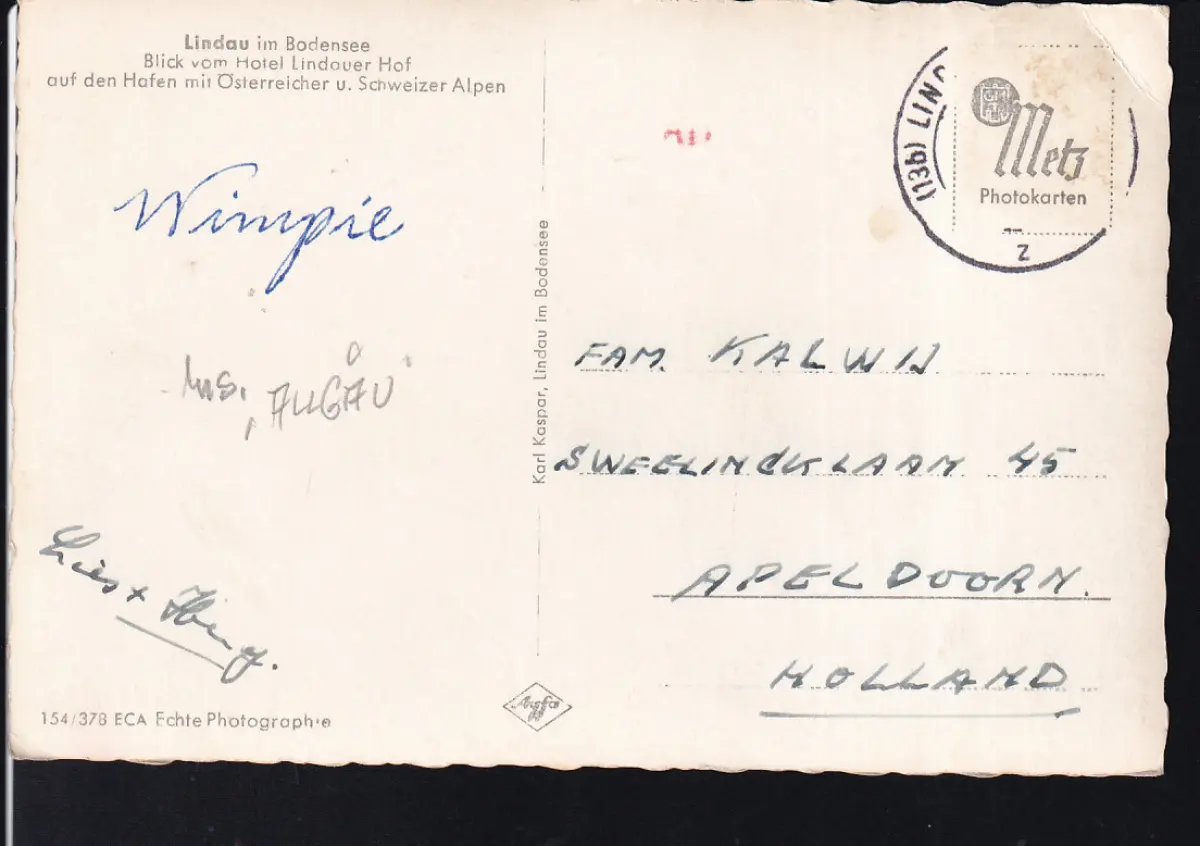 Lindau im Bodensee
Blick vom Hotel Lindauer Hof
auf den Hafen mit Österreicher u. Schweizer Alpen
Wimpie
ms. „ALLGÄU"
Lies + Henny.
154/378 ECA Echte Photographie
Karl Kaspar, Lindau im Bodensee
Agfa
(13b) LIND
z
Metz
Photokarten
FAM. KALWIJ
SWEELINCKLAAN 45
APELDOORN.
HOLLAND